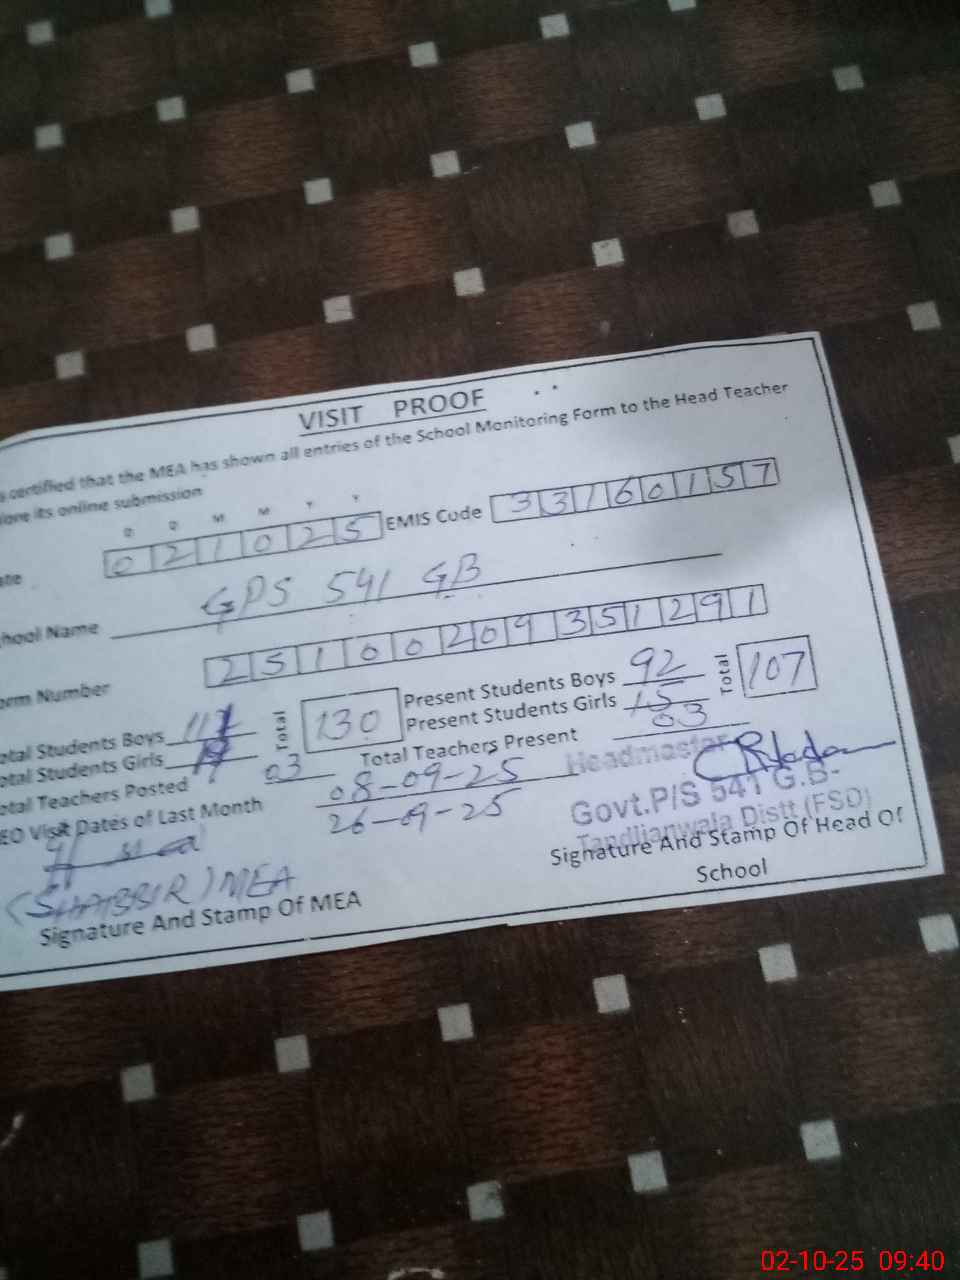 VISIT PROOF
certified that the MEA has shown all entries of the School Monitoring Form to the Head Teacher
its online submission
D D M M Y Y
021025 EMIS Code 33160157
School Name GPS 541 GB
Form Number 2510020935 1291
Total Students Boys Total 130 Present Students Boys 92 Total 107
Total Students Girls Present Students Girls 15
Total Teachers Posted 03 Total Teachers Present 03
EO Visit Dates of Last Month 08-09-25
26-09-25
Headmaster
Govt.P/S 541 G.B-
Tandlianwala Distt (FSD)
(SHABBIR) MEA
Signature And Stamp Of MEA
Signature And Stamp Of Head Of
School
02-10-25 09:40